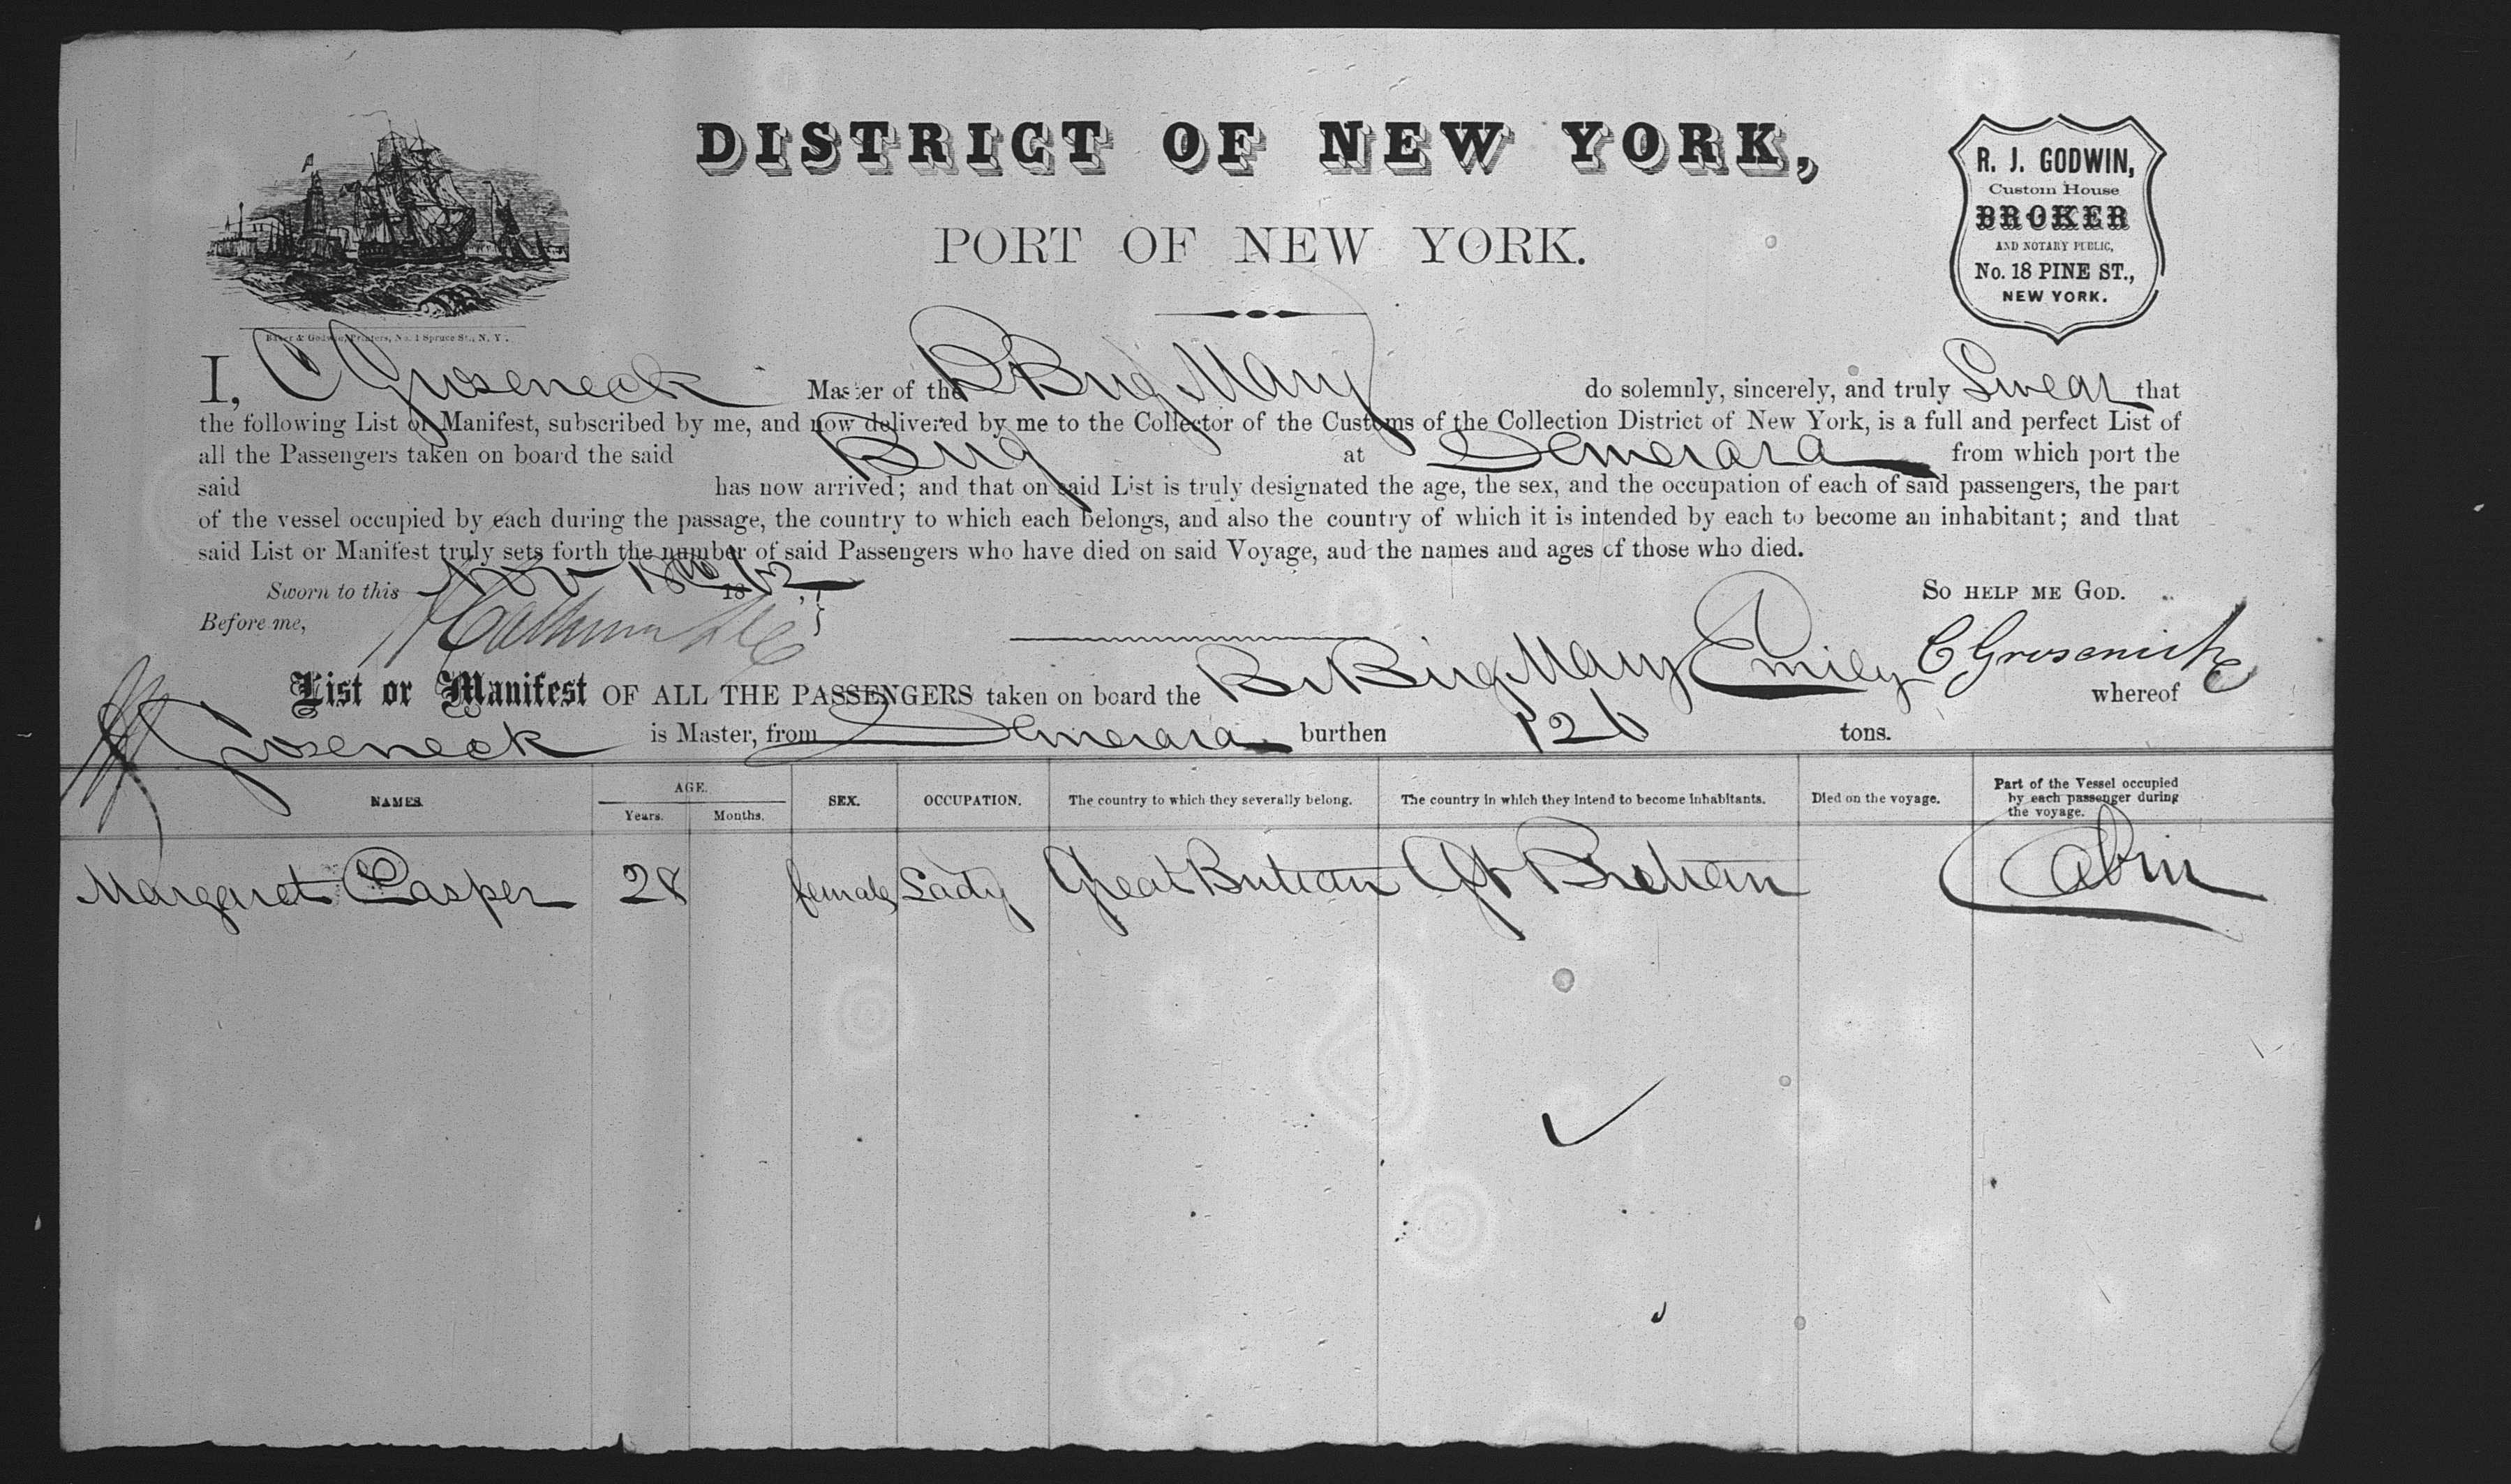 DISTRICT OF NEW YORK,
PORT OF NEW YORK.
R. J. GODWIN,
Custom House
BROKER
AND NOTARY PUBLIC,
No. 18 PINE ST.,
NEW YORK.
Baker & Godwin, Printers, No. 1 Spruce St., N. Y.
I, C Groseneck Master of the Br Brig Mary do solemnly, sincerely, and truly Swear that
the following List or Manifest, subscribed by me, and now delivered by me to the Collector of the Customs of the Collection District of New York, is a full and perfect List of
all the Passengers taken on board the said Brig at Demerara from which port the
said has now arrived; and that on said List is truly designated the age, the sex, and the occupation of each of said passengers, the part
of the vessel occupied by each during the passage, the country to which each belongs, and also the country of which it is intended by each to become an inhabitant; and that
said List or Manifest truly sets forth the number of said Passengers who have died on said Voyage, and the names and ages of those who died.
Sworn to this Nov 18th 1862, SO HELP ME GOD.
Before me,
List or Manifest OF ALL THE PASSENGERS taken on board the Br Brig Mary Emily C Grosenick whereof
Groseneck is Master, from Demerara burthen 126 tons.
NAMES. AGE. Years. Months. SEX. OCCUPATION. The country to which they severally belong. The country in which they intend to become inhabitants. Died on the voyage. Part of the Vessel occupied by each passenger during the voyage.
Margaret Casper 28 female Lady Great Britian Gt Britian Cabin